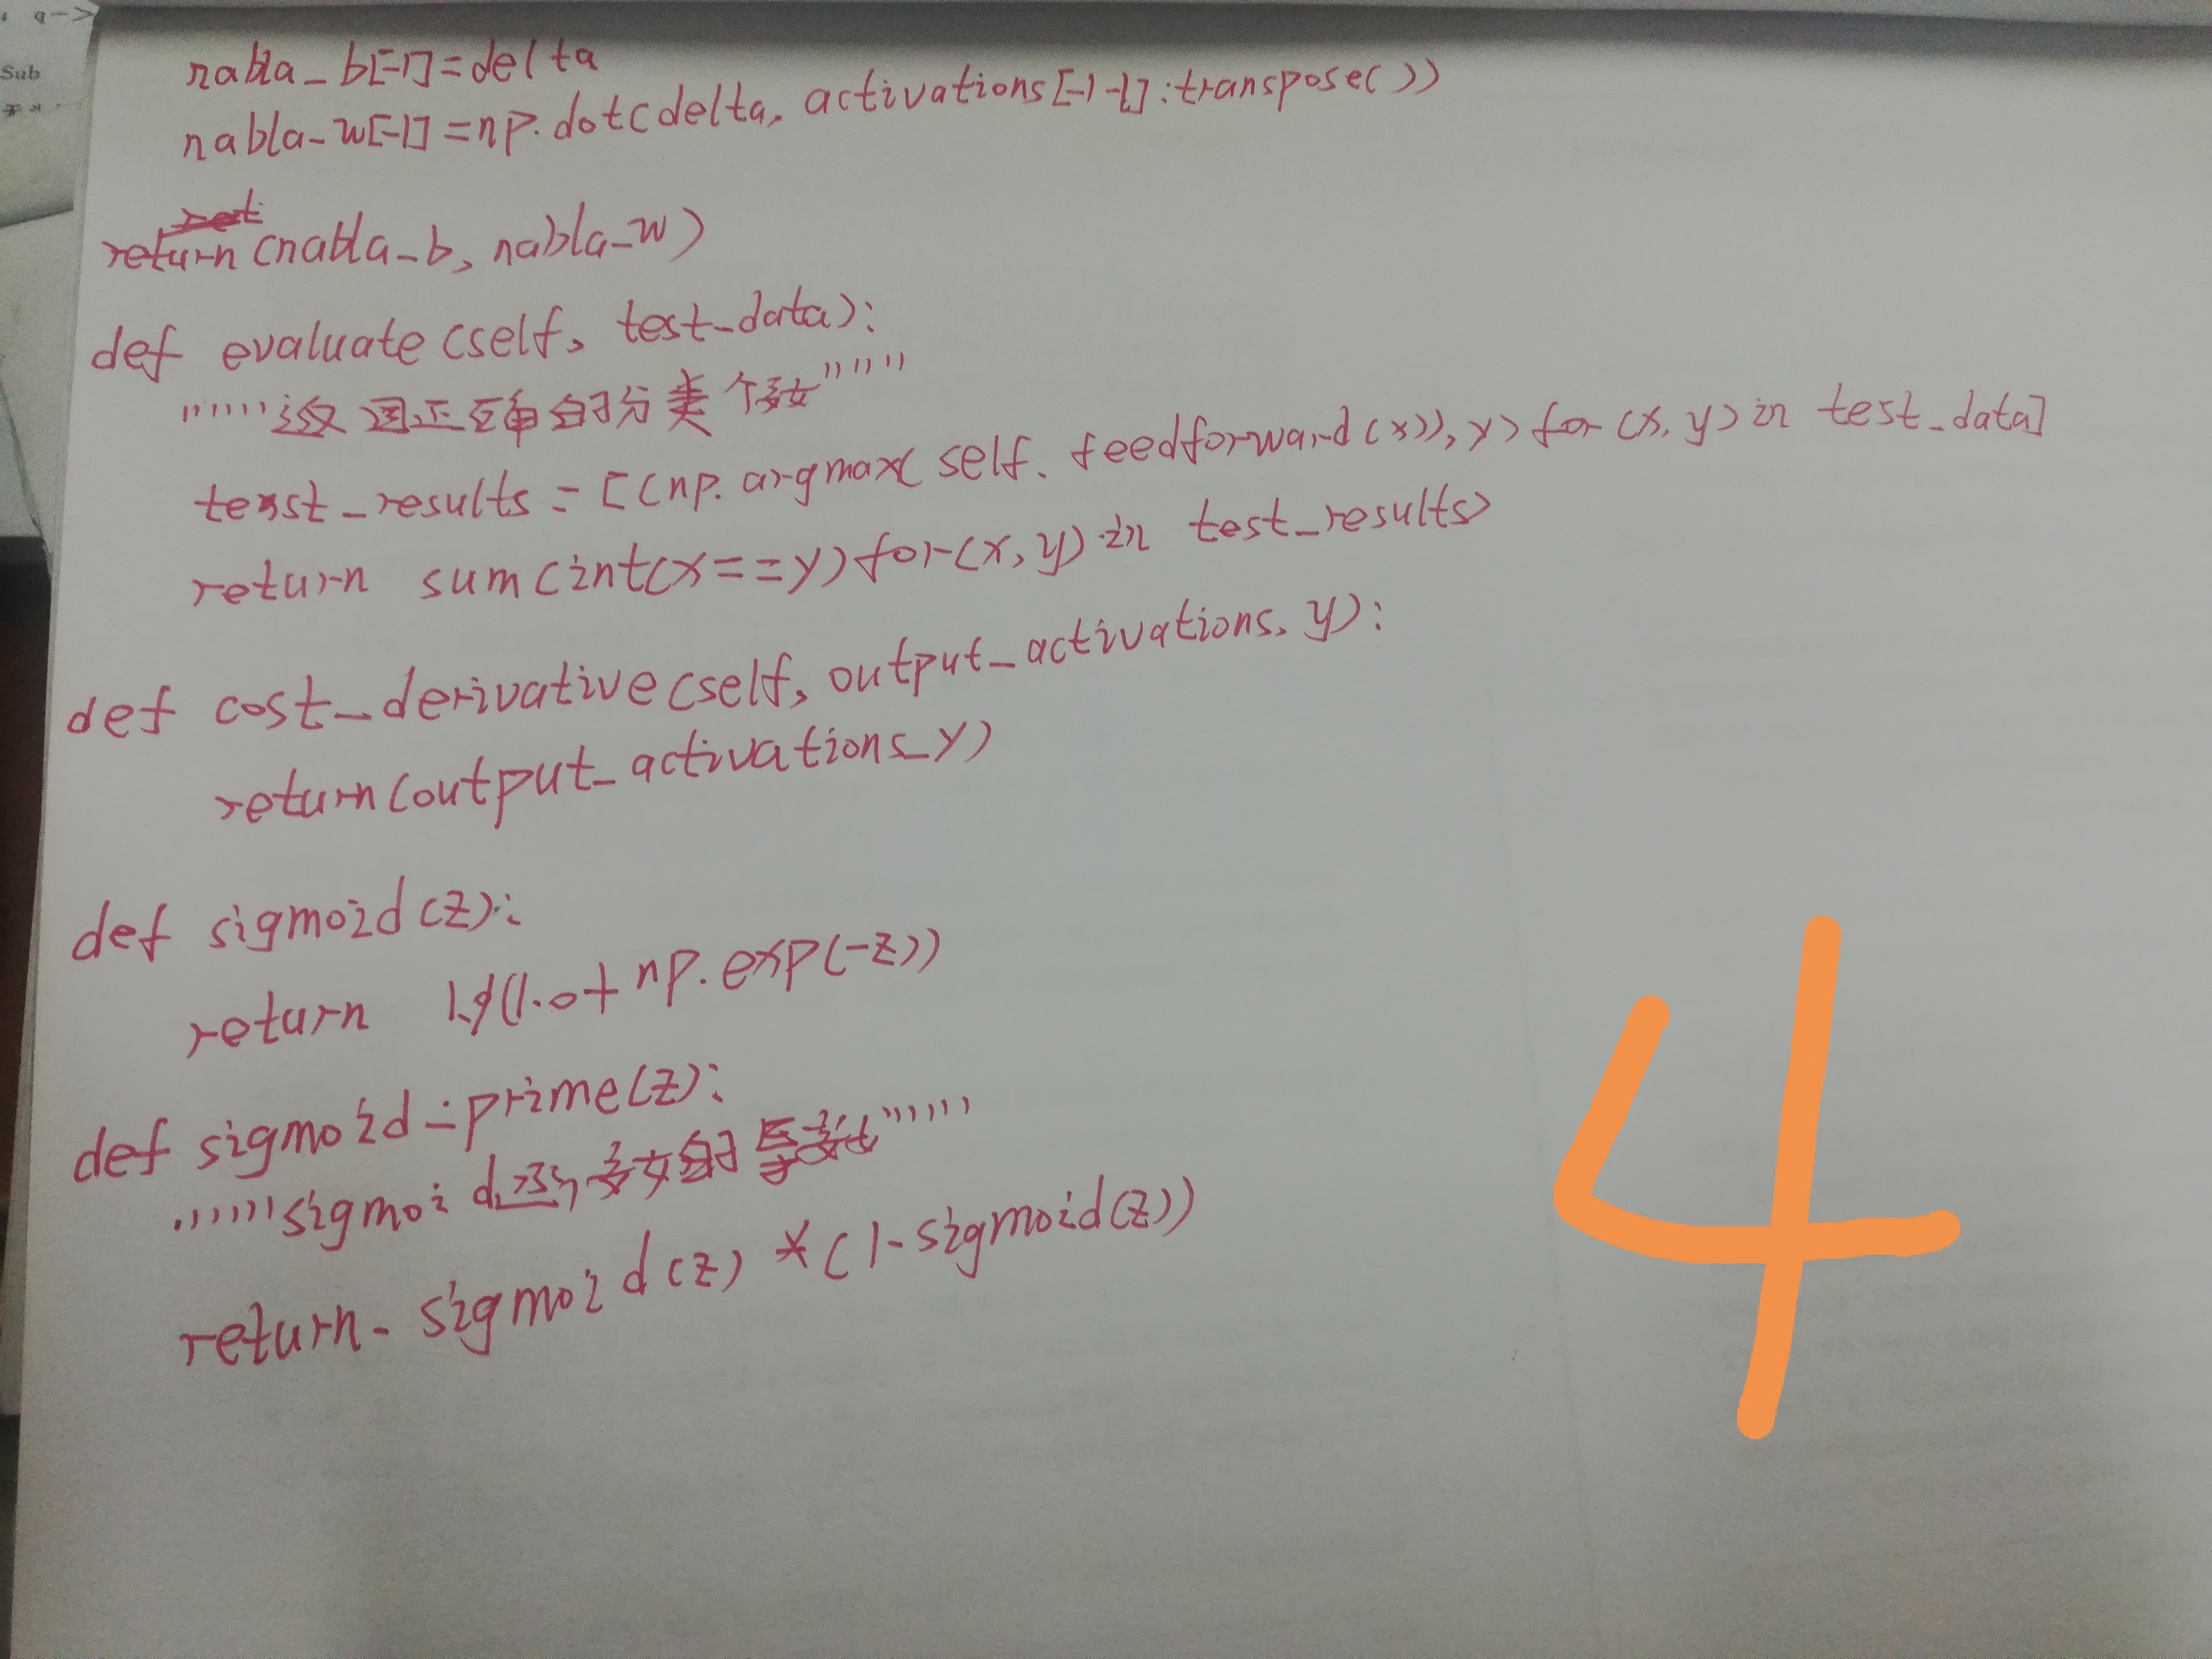 q->
Sub
nabla_b[-1]=delta
nabla-w[-1]=np.dot(delta, activations[-1-1]:transpose())
return(nabla_b, nabla_w)
def evaluate(self, test_data):
""""""返回正确的分类个数""""""
test_results = [(np.argmax(self.feedforward(x)),y) for (x,y) in test_data]
return sum(int(x==y) for (x,y) in test_results)
def cost_derivative(self, output_activations, y):
return(output_activations_y)
def sigmoid(z):
return 1./(1.0+np.exp(-z))
def sigmoid_prime(z):
""""""sigmoid函数的导数""""""
return sigmoid(z)*(1-sigmoid(z))
4